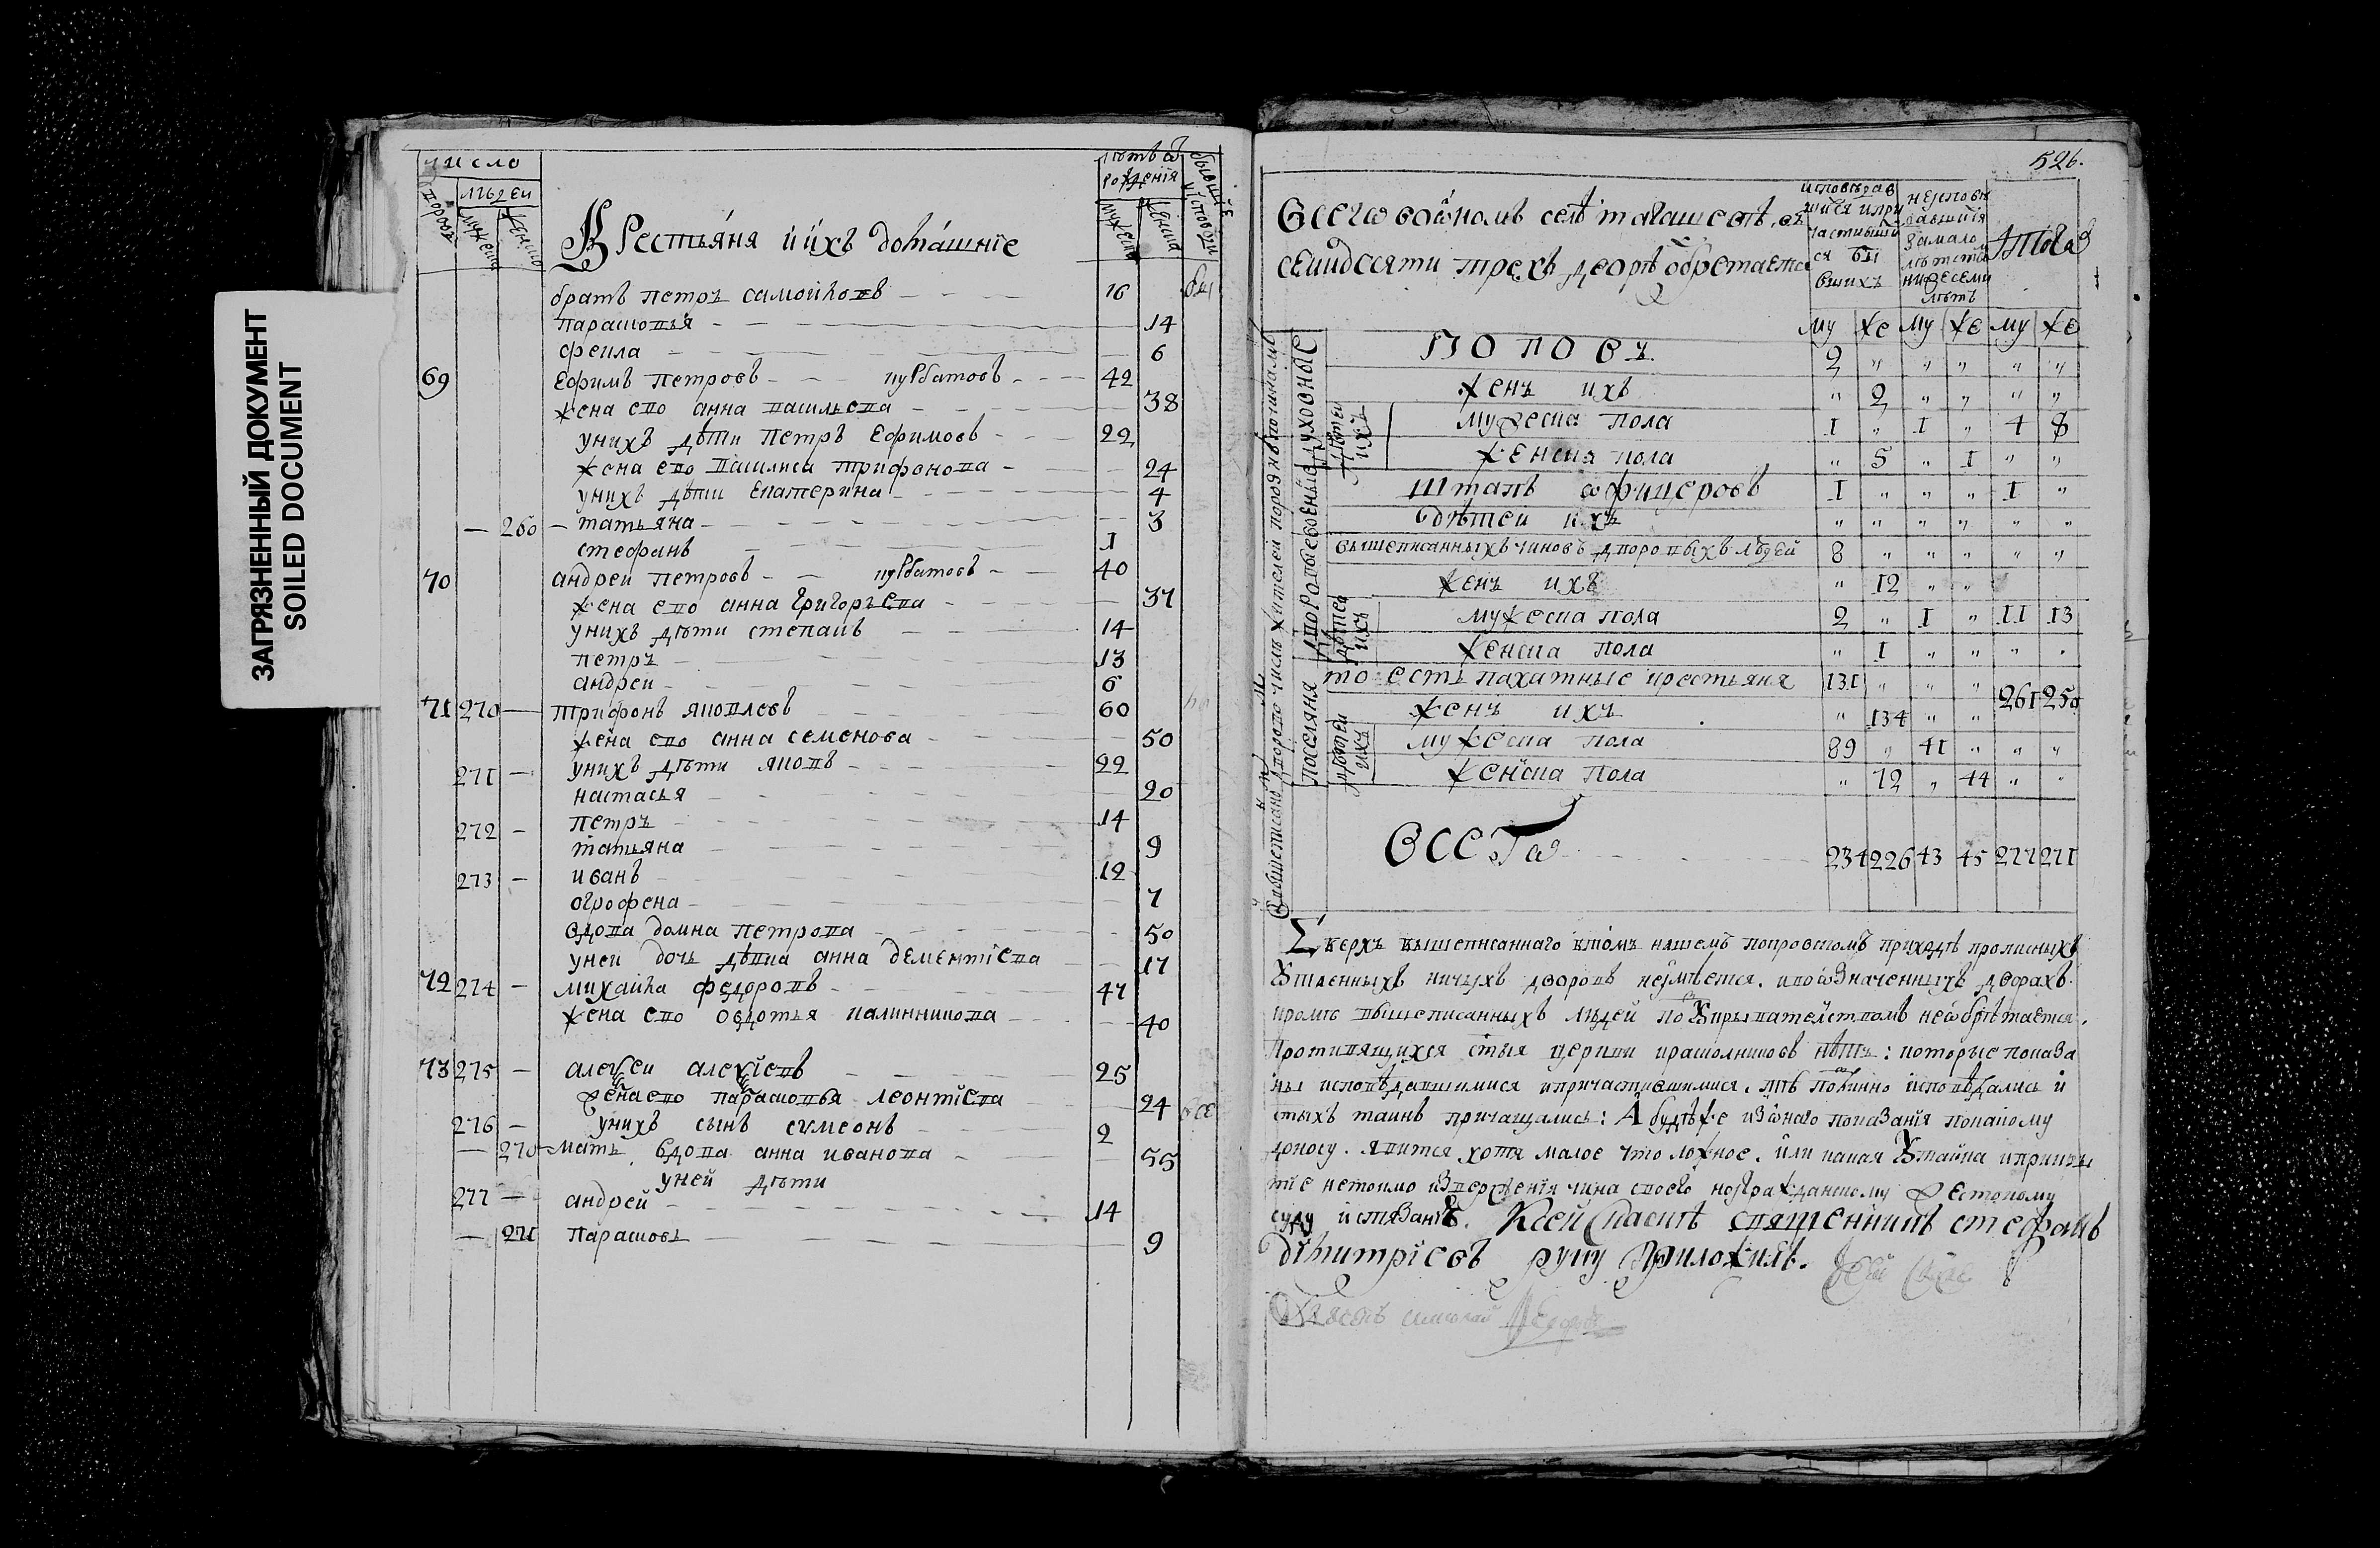 ЗАГРЯЗНЕННЫЙ ДОКУМЕНТ
SOILED DOCUMENT
число
людей
лѣтъ ѿ рожденія
Крестьяня и ихъ домашніе
братъ петръ самойловъ 16
парасковья 14
фекла 6
69 Ефимъ петровъ курбатовъ 42
жена ево анна васильева 38
у нихъ дѣти петръ Ефимовъ 22
жена ево василиса трифонова 24
у нихъ дѣти Екатерина 4
260 татьяна 3
стефанъ 1
70 андреи петровъ курбатовъ 40
жена ево анна григорьева 37
у нихъ дѣти степанъ 14
петръ 13
андреи 6
71 270 трифонъ яковлевъ 60
жена ево анна семенова 50
271 у нихъ дѣти яковъ 22
настасья 20
272 петръ 14
татьяна 9
273 иванъ 12
огрофена 7
вдова домна петрова 50
у неи дочь дѣвка анна дементіева 17
72 274 михайла федоровъ 47
жена ево овдотья калинникова 40
73 275 алеѯеи алеѯіевъ 25
жена ево парасковья леонтіева 24
276 у нихъ сынъ сѵмеонъ 2
270 мать вдова анна иванова 55
у ней дѣти
277 андрей 14
271 парасковья 9
526.
Всегѡ во ѡномъ селѣ
семидесяти трехъ дворѣ обретаетца
исповѣдав
шихся и при
частивши
ся бы
вшихъ
не исповѣ
давшихся
за мало
лѣтств
ниже семи
лѣтъ
Итого
му же му же му же
духовные
поповъ 2 " " " " "
женъ ихъ " 2 " " " "
дѣтей ихъ
мужеска пола 1 " 1 " 4 8
женска пола " 5 " 1 " "
штапъ ѡфицеровъ 1 " " " 1 "
дѣтей ихъ " " " " " "
вышеписанныхъ чиновъ дворовыхъ людей 8 " " " " "
женъ ихъ " 12 " "
дѣтей ихъ
мужеска пола 2 " 1 " 11 13
женска пола " 1 " " "
поселяня
то есть пахатные крестьяня 131 " " " 261 250
женъ ихъ " 134 " "
дѣтей ихъ
мужеска пола 89 " 41 " " "
женска пола " 72 " 44 "
Всегѡ 234 226 43 45 277 271
Сверхъ вышеписаннаго в томъ нашемъ поповскомъ приходѣ прописныхъ
ѹтаенныхъ ничьихъ дворовъ не имѣется. и по ѡзначеннымъ дворахъ
кромѣ вышеписанныхъ людей по ѹкрывателствамъ не ѡбрѣтается.
Противящихся стыя церкви и раскольниковъ нѣтъ: которые показа
ны исповѣдавшимися и причастившимися. тѣ повинно исповѣдались и
стыхъ таинъ причащались: А будѣ же из ѡнаго показанія по какому
доносу. явится хотя малое что ложное. или какая ѹтайка и прикры
тіе не токмо изверженія чина своего но и гражданскому жестокому
суду и стязанію. К сей сказкѣ священникъ стефанъ
димитріевъ руку приложилъ.